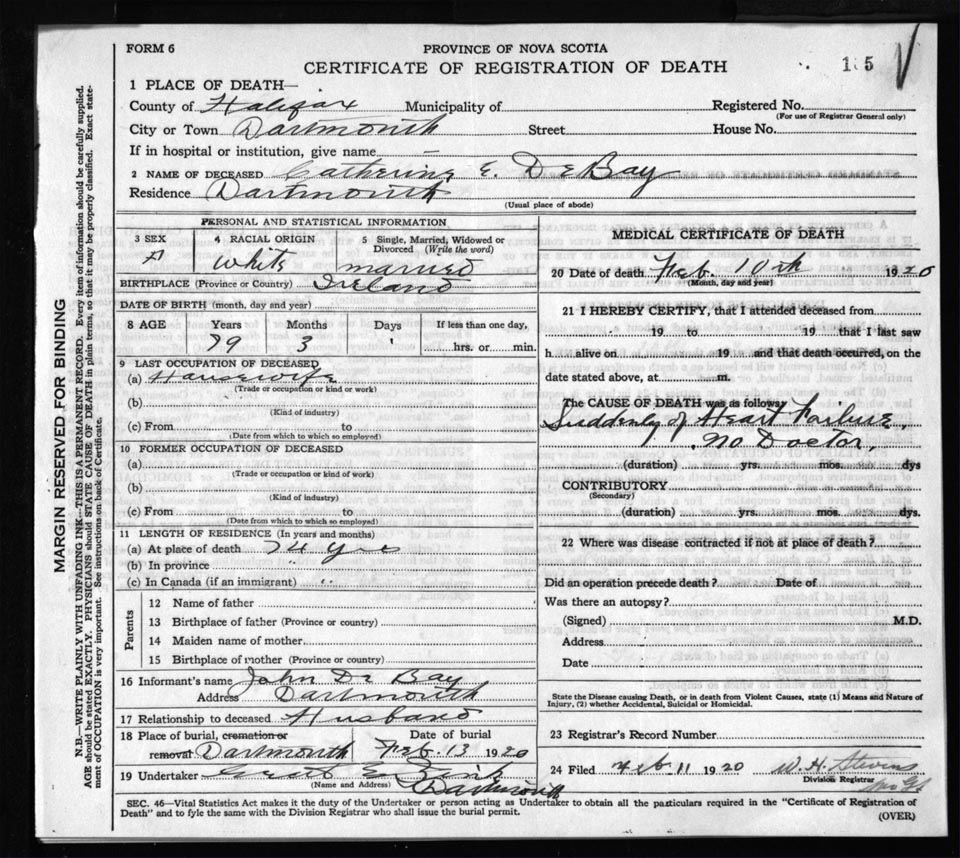 FORM 6
PROVINCE OF NOVA SCOTIA
CERTIFICATE OF REGISTRATION OF DEATH
15
1 PLACE OF DEATH—
County of Halifax Municipality of Registered No.
(For use of Registrar General only)
City or Town Dartmouth Street House No.
If in hospital or institution, give name
2 NAME OF DECEASED Catherine E. DeBay
Residence Dartmouth
(Usual place of abode)
PERSONAL AND STATISTICAL INFORMATION
3 SEX
4 RACIAL ORIGIN
white
5 Single, Married, Widowed or Divorced (Write the word)
married
BIRTHPLACE (Province or Country) Ireland
DATE OF BIRTH (month, day and year)
8 AGE Years Months Days If less than one day,
79 3 hrs. or min.
9 LAST OCCUPATION OF DECEASED
(a) Housewife
(Trade or occupation or kind or work)
(b)
(Kind of industry)
(c) From to
(Date from which to which so employed)
10 FORMER OCCUPATION OF DECEASED
(a)
(Trade or occupation or kind of work)
(b)
(Kind of industry)
(c) From to
(Date from which to which so employed)
11 LENGTH OF RESIDENCE (In years and months)
(a) At place of death 74 yrs
(b) In province "
(c) In Canada (if an immigrant) "
Parents
12 Name of father
13 Birthplace of father (Province or country)
14 Maiden name of mother
15 Birthplace of mother (Province or country)
16 Informant's name John De Bay
Address Dartmouth
17 Relationship to deceased Husband
18 Place of burial, cremation or Date of burial
removal Dartmouth Feb. 13 1920
19 Undertaker
(Name and Address) Dartmouth
MEDICAL CERTIFICATE OF DEATH
20 Date of death Feb. 10th 1920
(Month, day and year)
21 I HEREBY CERTIFY, that I attended deceased from
19 to 19 that I last saw
h alive on 19 and that death occurred, on the
date stated above, at m.
The CAUSE OF DEATH was as follows
Suddenly of Heart Failure.
No Doctor.
(duration) yrs. mos. dys
CONTRIBUTORY
(Secondary)
(duration) yrs. mos. dys.
22 Where was disease contracted if not at place of death?
Did an operation precede death? Date of
Was there an autopsy?
(Signed) M.D.
Address
Date
State the Disease causing Death, or in death from Violent Causes, state (1) Means and Nature of
Injury, (2) whether Accidental, Suicidal or Homicidal.
23 Registrar's Record Number
24 Filed Feb 11 1920 W. H. Stevens
Division Registrar
SEC. 46—Vital Statistics Act makes it the duty of the Undertaker or person acting as Undertaker to obtain all the particulars required in the "Certificate of Registration of
Death" and to fyle the same with the Division Registrar who shall issue the burial permit.
(OVER)
MARGIN RESERVED FOR BINDING
N.B.—WRITE PLAINLY WITH UNFADING INK—THIS IS A PERMANENT RECORD. Every item of information should be carefully supplied.
AGE should be stated EXACTLY. PHYSICIANS should STATE CAUSE OF DEATH in plain terms, so that it may be properly classified. Exact state-
ment of OCCUPATION is very important. See instructions on back of Certificate.